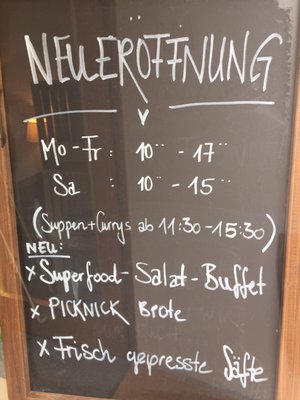 NEUERÖFFNUNG
Mo-Fr : 10°° - 17°°
Sa : 10°° - 15°°
(Suppen+Currys ab 11:30-15:30)
NEU:
x Superfood-Salat-Buffet
x PICKNICK Brote
x Frisch gepresste Säfte